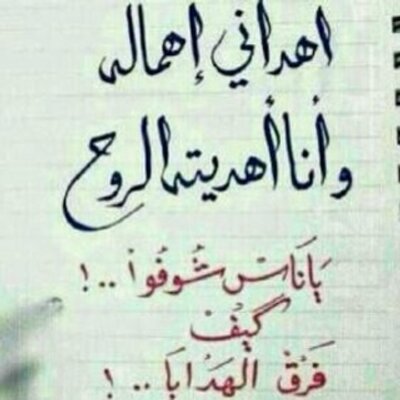 اهداني إهماله
وأنا أهديته الروح
يَانَاسْ شُوفُواْ ..!
كَيْفْ
فَرْقْ الْهَدَايَا ..!